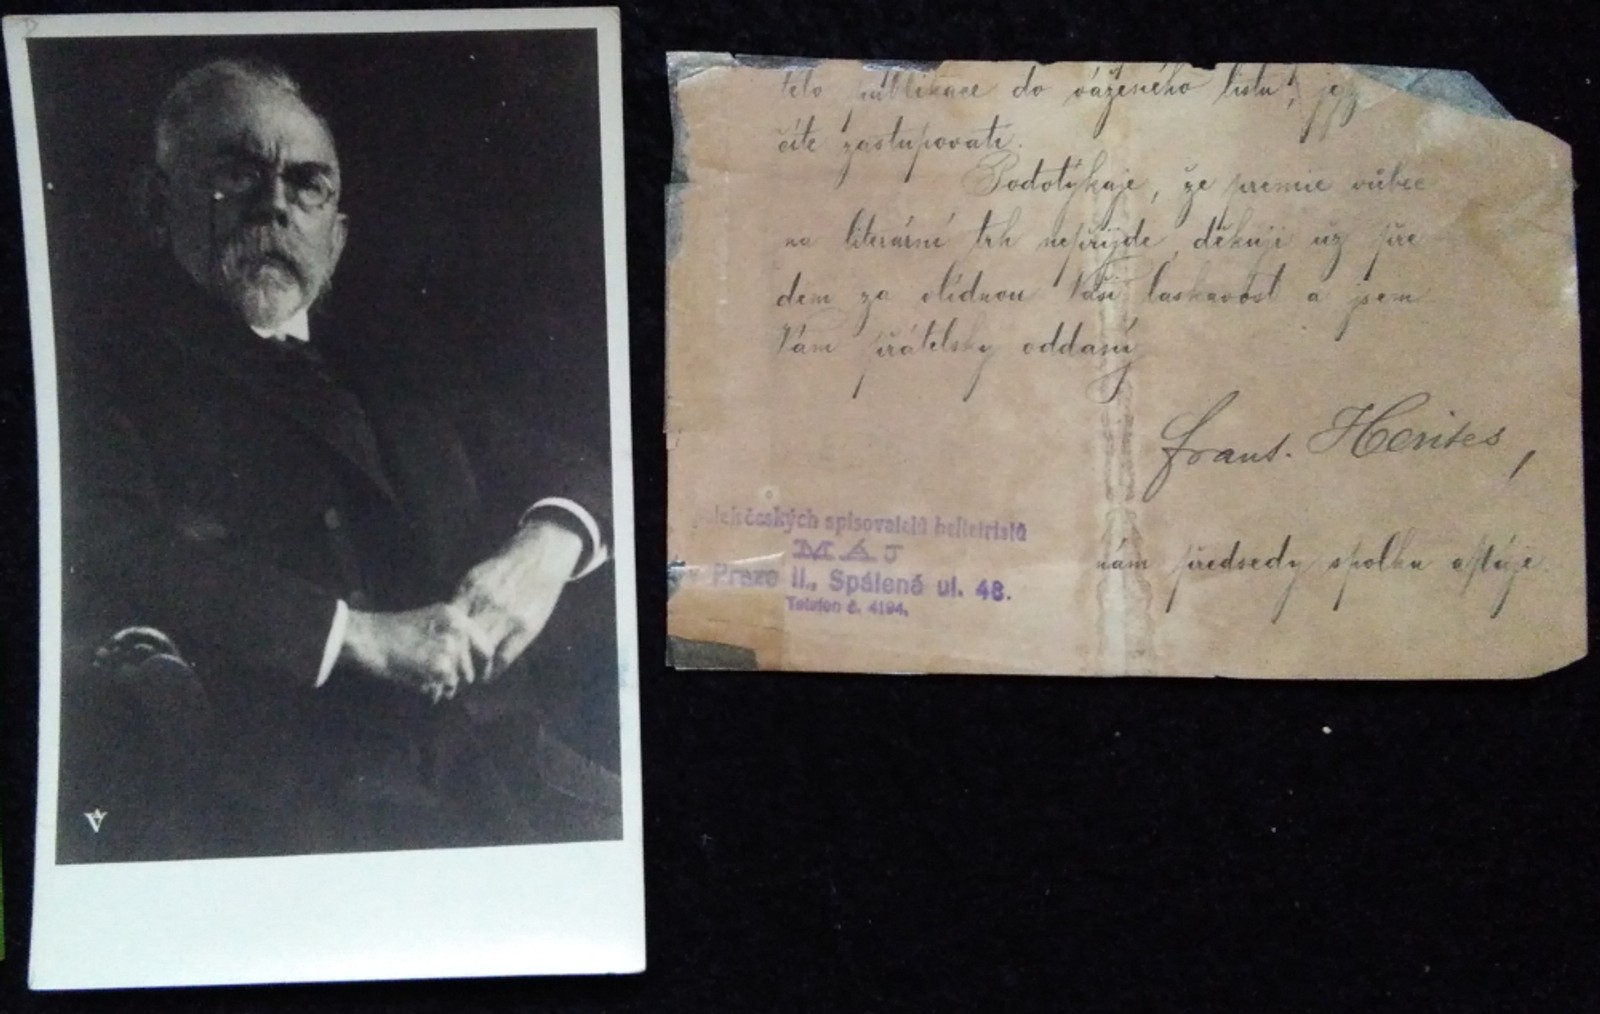 této publikace do váženého listu, jejž
číte zastupovati.
Podotýkaje, že premie vůbec
na literární trh nepřijde, děkuji už pře
dem za vlídnou Vaši laskavost a jsem
Vám přátelsky oddaný
Frant. Herites,
nám. předsedy spolku
českých spisovatelů belletristů
MÁJ
Praze II., Spálená ul. 48.
Telefon č. 4194.